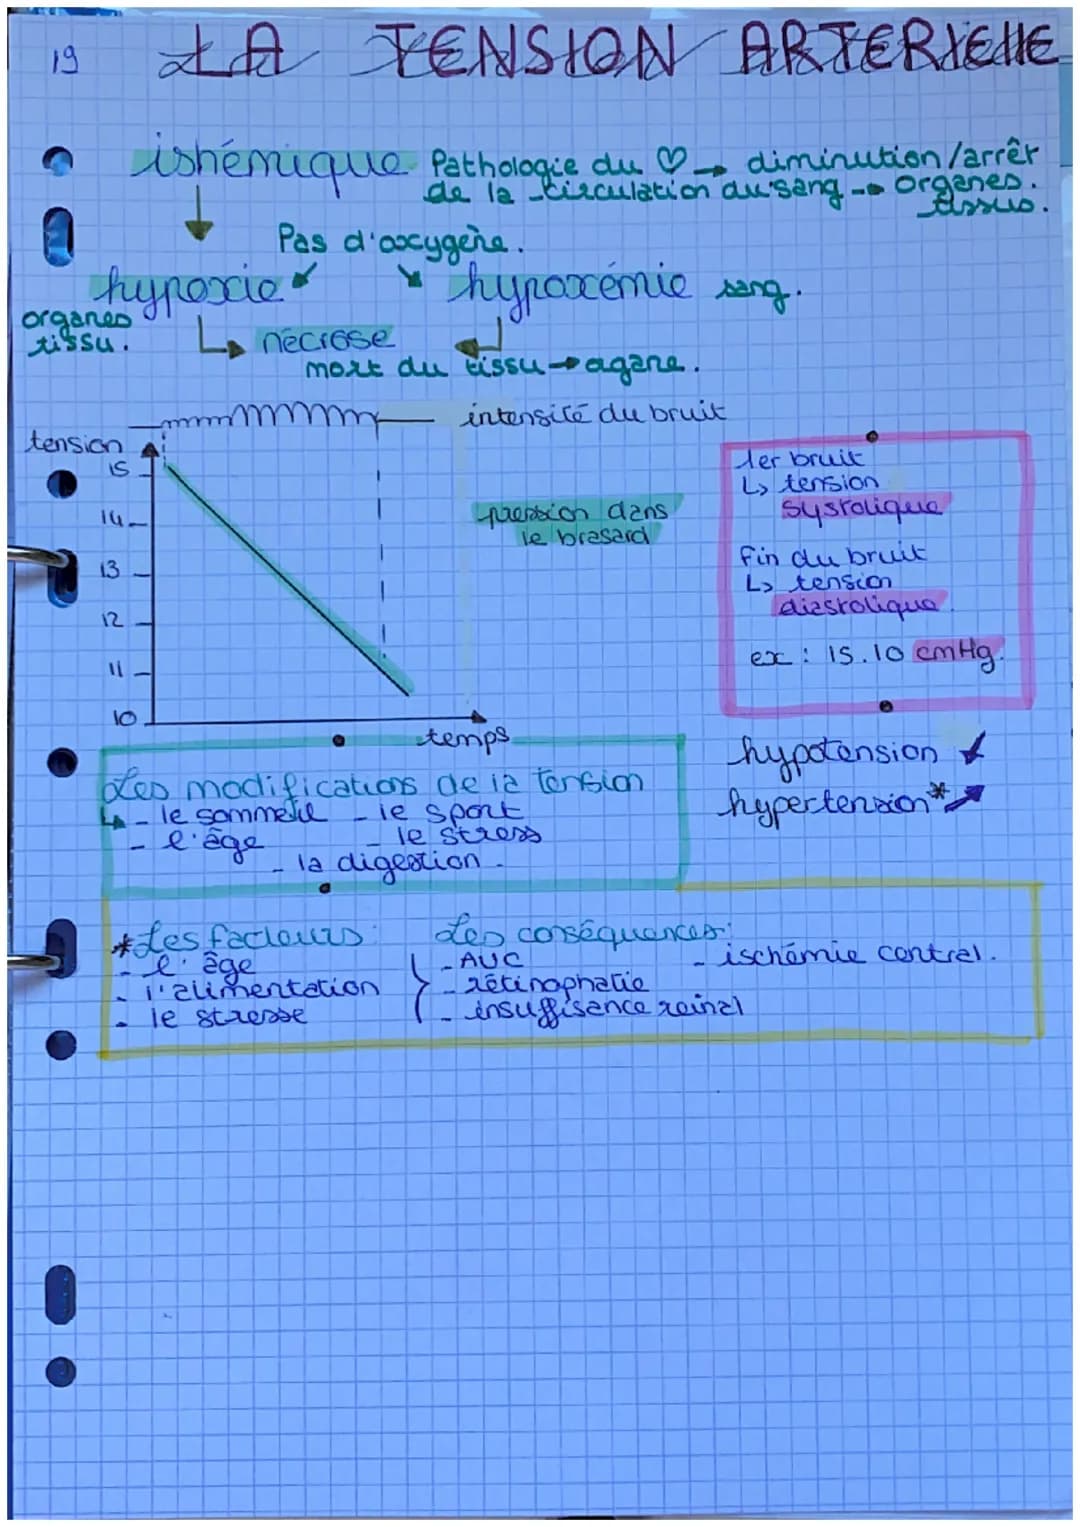 19
LA TENSION ARTERIELLE
ishémique Pathologie du ♡ → diminution/arrêt
de la circulation du sang → organes.
tissus.
Pas d'oxygène.
hypoxie
hypoxémie sang.
organes
tissu.
nécrose
mort du tissu → organe.
intensité du bruit
tension
15
14
13
12
11
10
temps
pression dans
le brasard
1er bruit
↳ tension
systolique
Fin du bruit
↳ tension
diastolique
ex : 15.10 cmHg.
hypotension ↙
hypertension* ↗
Les modifications de la tension
↳ - le sommeil - le sport
- l'âge - le stress
- la digestion.
*Les facteurs :
- l'âge
- l'alimentation
- le stresse
Les conséquences :
- AUC - ischémie contral.
- rétinophatie
- insuffisance reinal